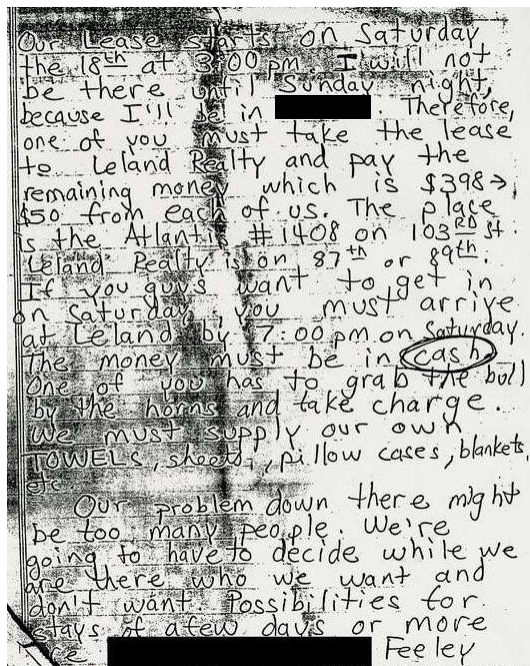 Our Lease starts on Saturday
the 18th at 3:00 pm I will not
be there until Sunday night,
because I'll be in . Therefore,
one of you must take the lease
to Leland Realty and pay the
remaining money which is $398→,
$50 from each of us. The place
is the Atlantis #1408 on 103RD st.
Leland Realty is on 87th or 89th.
If you guys want to get in
on Saturday, you must arrive
at Leland by 7:00 pm on Saturday.
The money must be in cash.
One of you has to grab the bull
by the horns and take charge.
We must supply our own
TOWELS, sheets, pillow cases, blankets,
etc.
Our problem down there might
be too many people. We're
going to have to decide while we
are there who we want and
don't want. Possibilities for
stays of a few days or more
are Feeley